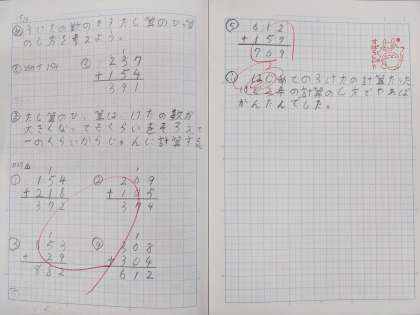 3けたの数のたし算のひっ算
のし方を考えよう。
1
237
+154
391
たし算のひっ算は、けたの数が
大きくなってもくらいをそろえて
一のくらいからじゅんに計算する。
① 154
+218
372
② 209
+165
374
③ 853
+29
882
④ 308
+304
612
⑤ 612
+159
769
はじめての3けたの計算だった
けど2年の計算のし方でやれば
かんたんでした。